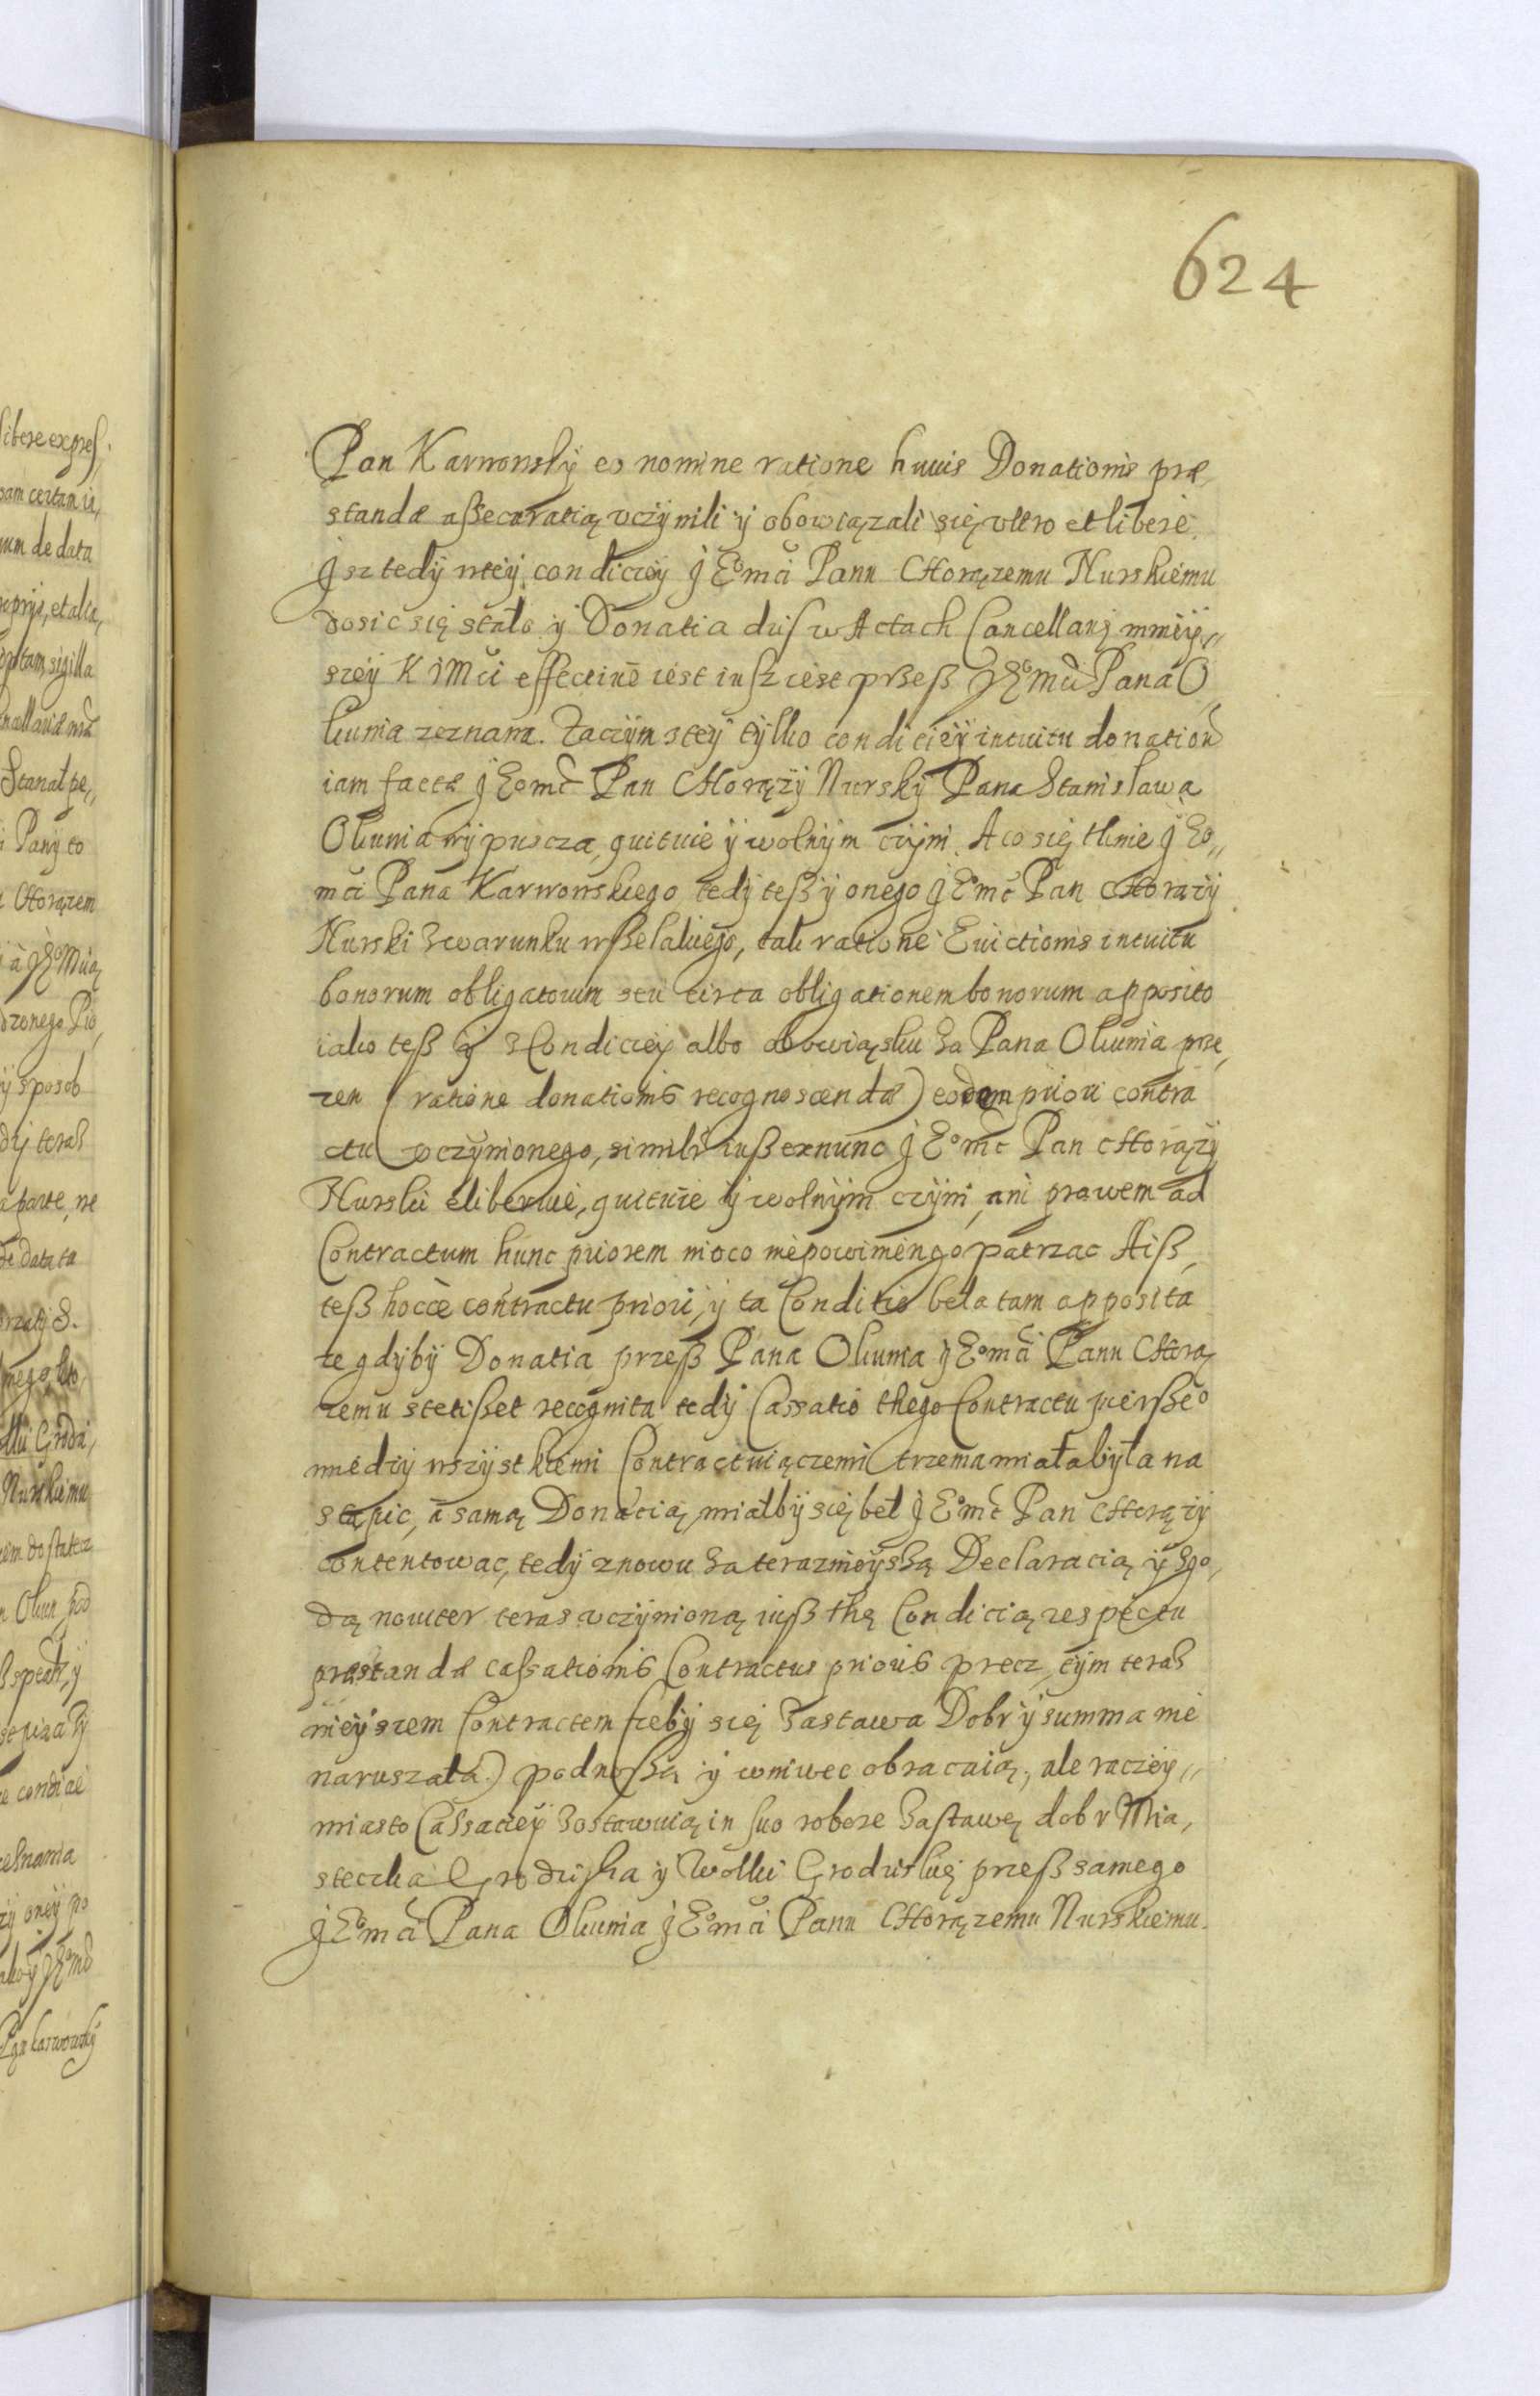 624
Pan Karwowsky eo nomine ratione huius Donationis præ
standæ assecuratią vczynili y obowiązali się vltro et libere.
Jsz tedy wtey condiciey JE̊mci Panu Chorązemu Nurskiemu
dosic się stało y Donatia dzis w Actach Cancellariy mniey„
szey KJMci effectiue iest iusz iest przesz JE̊mci Pana O
kunia zeznana. Zaczym stey tylko condiciey intuitu donation
iam factæ JEomc Pan Chorązy Nursky Pana Stanisława
Okunia wypuscza, quituie y wolnym czyni. A co się tknie JEo„
mci Pana Karwowskiego tedy tesz y onego JE̊mc Pan Chorązy
Nurski z warunku wszelakiego, tak ratione Euictionis intuitu
bonorum obligatorum seu circa obligationem bonorum apposito
iako tesz y z Condiciey albo obowiąsku za Pana Okunia prze,
zen (ratione donationis recognoscendæ) eodem priori contra
ctu vczynionego, simili iusz exnunc JE̊mc Pan Chorązy
Nurski eliberuie, quituie y wolnym czyni, ani prawem ad
Contractum hunc priorem nioco niepowinien go patrzac Aisz,
tesz hocce contractu priori, y ta Conditio beła tam apposita
ze gdyby Donatia przesz Pana Okunia JE̊mci Panu Chorą
zemu stetisset recognita tedy Cassatio thego Contractu pierszeo
miedzy wszystkiemi Contractuiączemi trzema miała była na
stąpic, a samą Donacią miałby się beł JE̊mc Pan Chorązy
contentowac, tedy znowu za terazmieyszą Declaracią y zgo,
dą nouiter teras vczynioną iusz thę Condicią respectu
præstandæ cassationis Contractus prioris precz, tym teraz
nieyszem Contractem (zeby się zastawa Dobr y summa nie
naruszała) podnoszą y wniwec obracaią, ale raczey„
miasto Cassaciey zostawuią in suo robore zastawę dobr Mia,
steczka Grodziska y Wolki Grodziskię przesz samego
JE̊mci Pana Okunia JE̊mci Panu Chorązemu Nurskiemu.